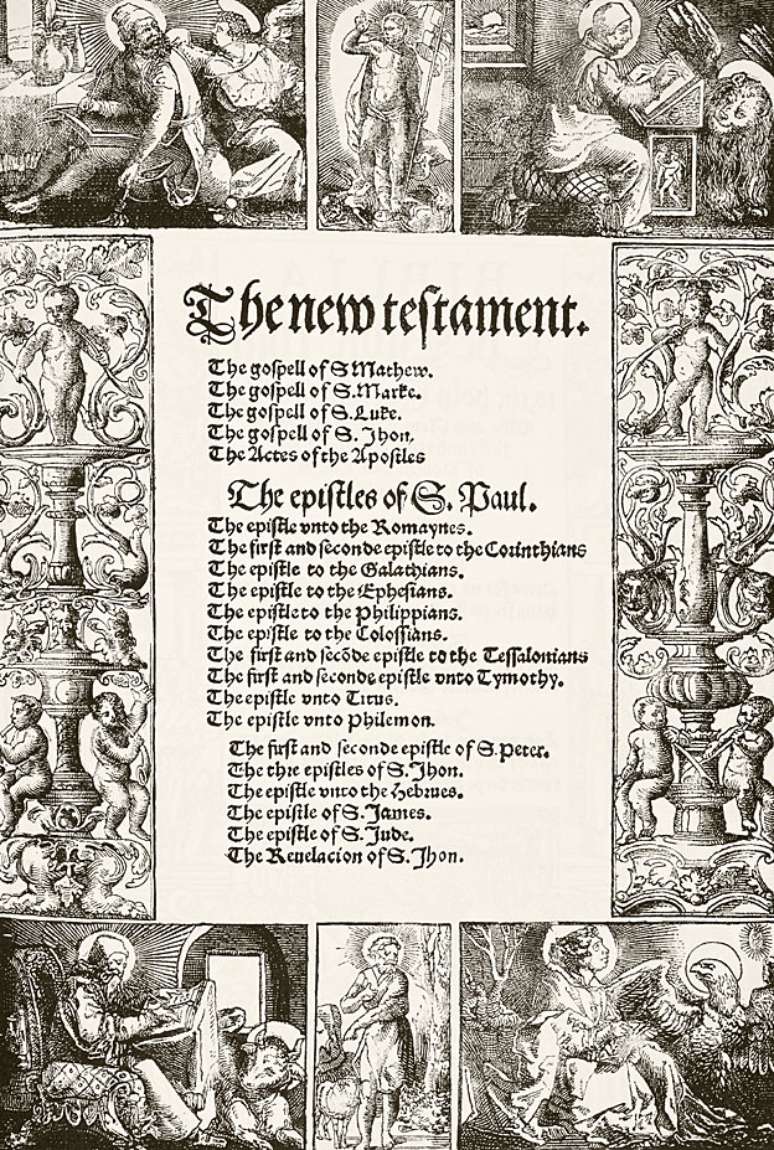 The new teſtament.
The goſpell of S Mathew.
The goſpell of S. Marke.
The goſpell of S. Luke.
The goſpell of S. Jhon.
The Actes of the Apoſtles
The epiſtles of S. Paul.
The epiſtle vnto the Romaynes.
The firſt and ſeconde epiſtle to the Corinthians
The epiſtle to the Galathians.
The epiſtle to the Epheſians.
The epiſtle to the Philippians.
The epiſtle to the Coloſſians.
The firſt and ſecōde epiſtle to the Teſſalonians
The firſt and ſeconde epiſtle vnto Tymothy.
The epiſtle vnto Titus.
The epiſtle vnto Philemon.
The firſt and ſeconde epiſtle of S. Peter.
The thre epiſtles of S. Jhon.
The epiſtle vnto the Hebrues.
The epiſtle of S. James.
The epiſtle of S. Jude.
The Reuelacion of S. Jhon.